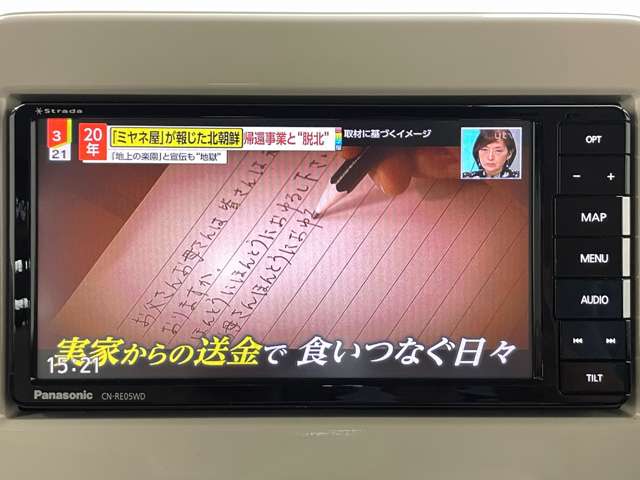 Strada
3
21
20年
「ミヤネ屋」が報じた北朝鮮
帰還事業と"脱北"
「地上の楽園」と宣伝も"地獄"
取材に基づくイメージ
お父さんお母さんは 皆さんは
おりますか。
ほんとうにほんとうにおゆるし下さい
母さんほんとうにおゆる
実家からの送金で 食いつなぐ日々
15:21
Panasonic
CN-RE05WD
OPT
− +
MAP
MENU
AUDIO
TILT